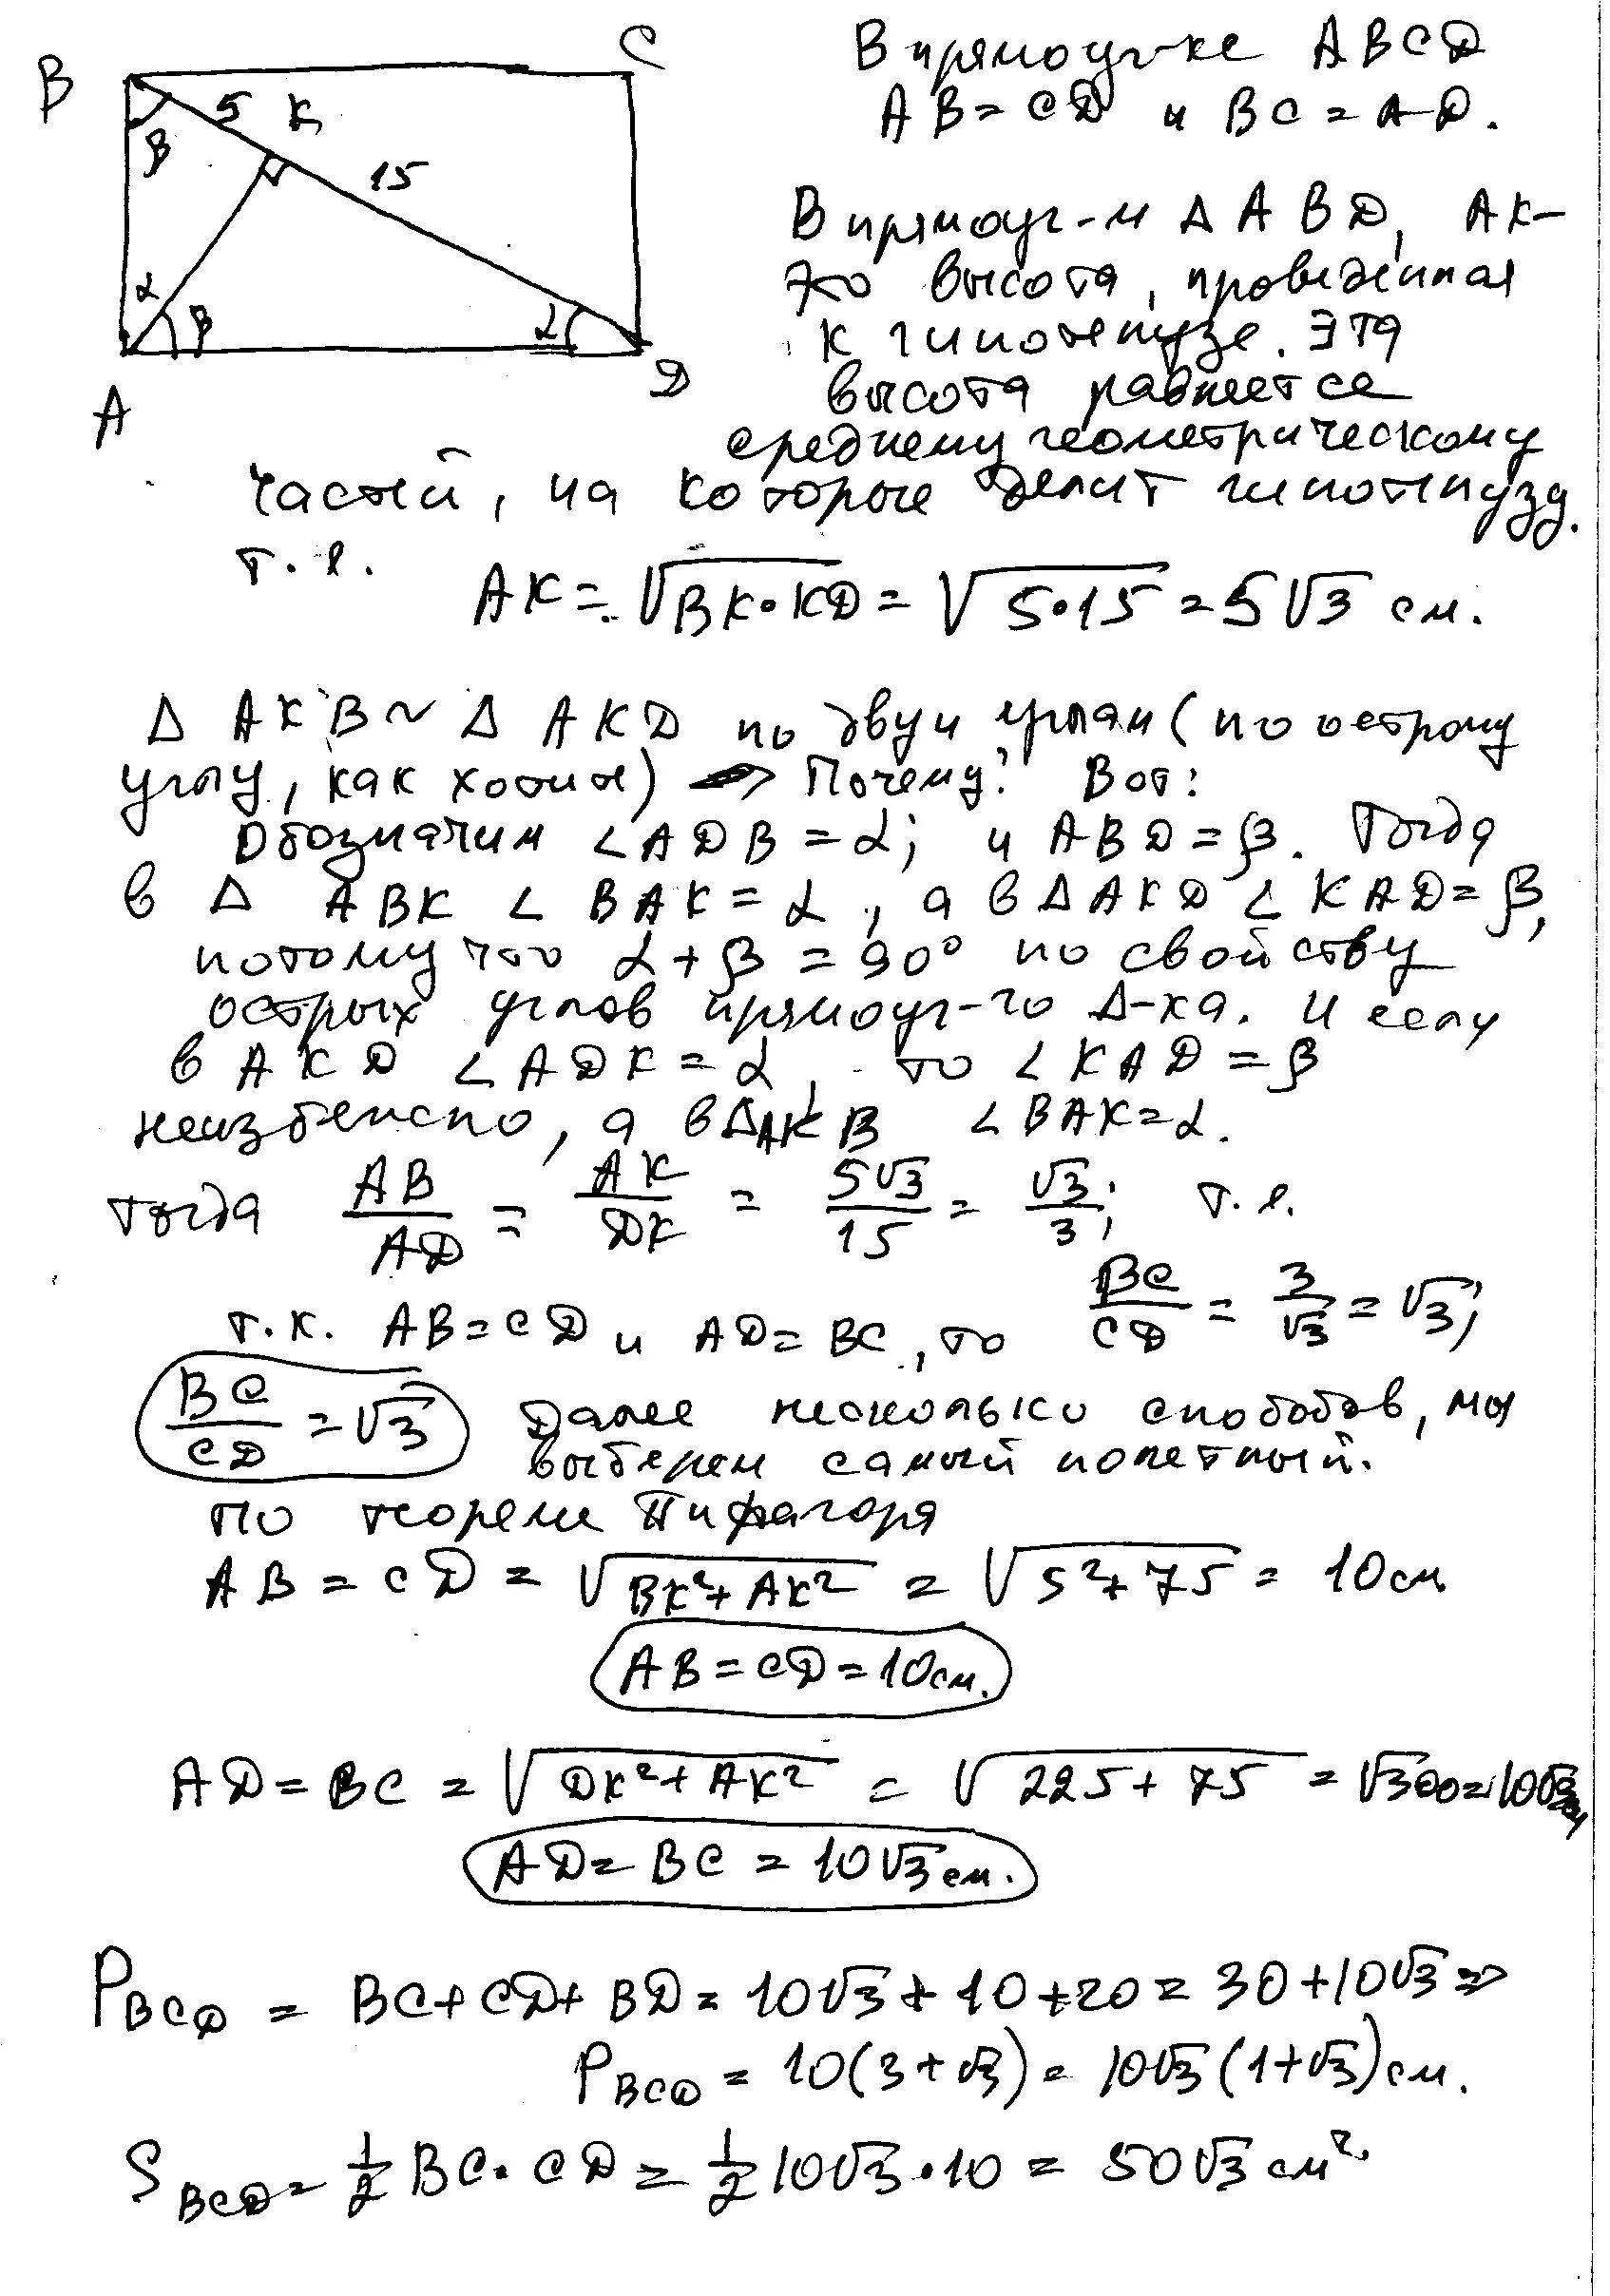 B
C
5
K
β
15
α
β
α
A
D
В прямоуг-ке ABCD
AB = CD и BC = AD.
В прямоуг-м Δ ABD, AK-
это высота, проведённая
к гипотенузе. Эта
высота равняется
среднему геометрическому
частей, на которые делит гипотенузу.
т. е.
AK = √BK·KD = √5·15 = 5√3 см.
Δ AKB ~ Δ AKD по двум углам (по острому
углу, как хотите) => Почему? Вот:
Обозначим ∠ADB = α; и ABD = β. Тогда
в Δ ABK ∠BAK = α, а в Δ AKD ∠KAD = β,
потому что α + β = 90° по свойству
острых углов прямоуг-го Δ-ка. И если
в AKD ∠ADK = α, то ∠KAD = β
неизбежно, а в ΔAKB ∠BAK = α.
Тогда AB/AD = AK/DK = 5√3/15 = √3/3; т. е.
т.к. AB = CD и AD = BC, то BC/CD = 3/√3 = √3;
BC/CD = √3 Далее несколько способов, мы
выберем самый понятный.
По теореме Пифагора
AB = CD = √BK²+AK² = √5²+75 = 10 см
AB = CD = 10 см.
AD = BC = √DK²+AK² = √225+75 = √300 = 10√3 см
AD = BC = 10√3 см.
P BCD = BC + CD + BD = 10√3 + 10 + 20 = 30 + 10√3 =>
P BCD = 10(3+√3) = 10√3(1+√3) см.
S BCD = 1/2 BC·CD = 1/2 10√3·10 = 50√3 см²